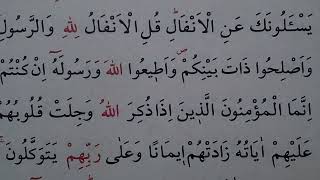 يَسْـَٔلُونَكَ عَنِ الْاَنْفَالِۜ قُلِ الْاَنْفَالُ لِلّٰهِ وَالرَّسُولِ
وَاَصْلِحُوا ذَاتَ بَيْنِكُمْۖ وَاَطٖيعُوا اللّٰهَ وَرَسُولَهُٓ اِنْ كُنْتُمْ
اِنَّمَا الْمُؤْمِنُونَ الَّذٖينَ اِذَا ذُكِرَ اللّٰهُ وَجِلَتْ قُلُوبُهُمْ
عَلَيْهِمْ اٰيَاتُهُ زَادَتْهُمْ اٖيمَانًا وَعَلٰى رَبِّهِمْ يَتَوَكَّلُونَ